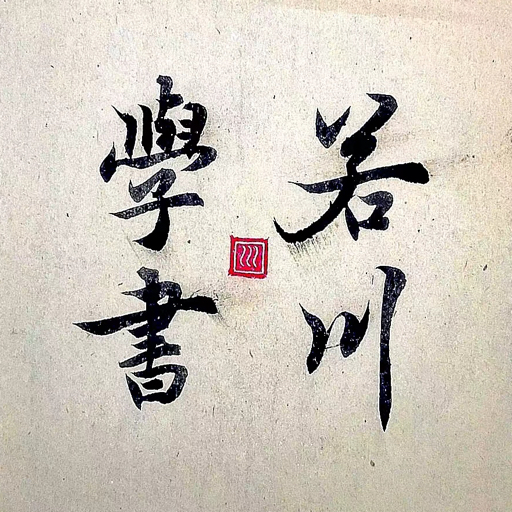 若川
學書